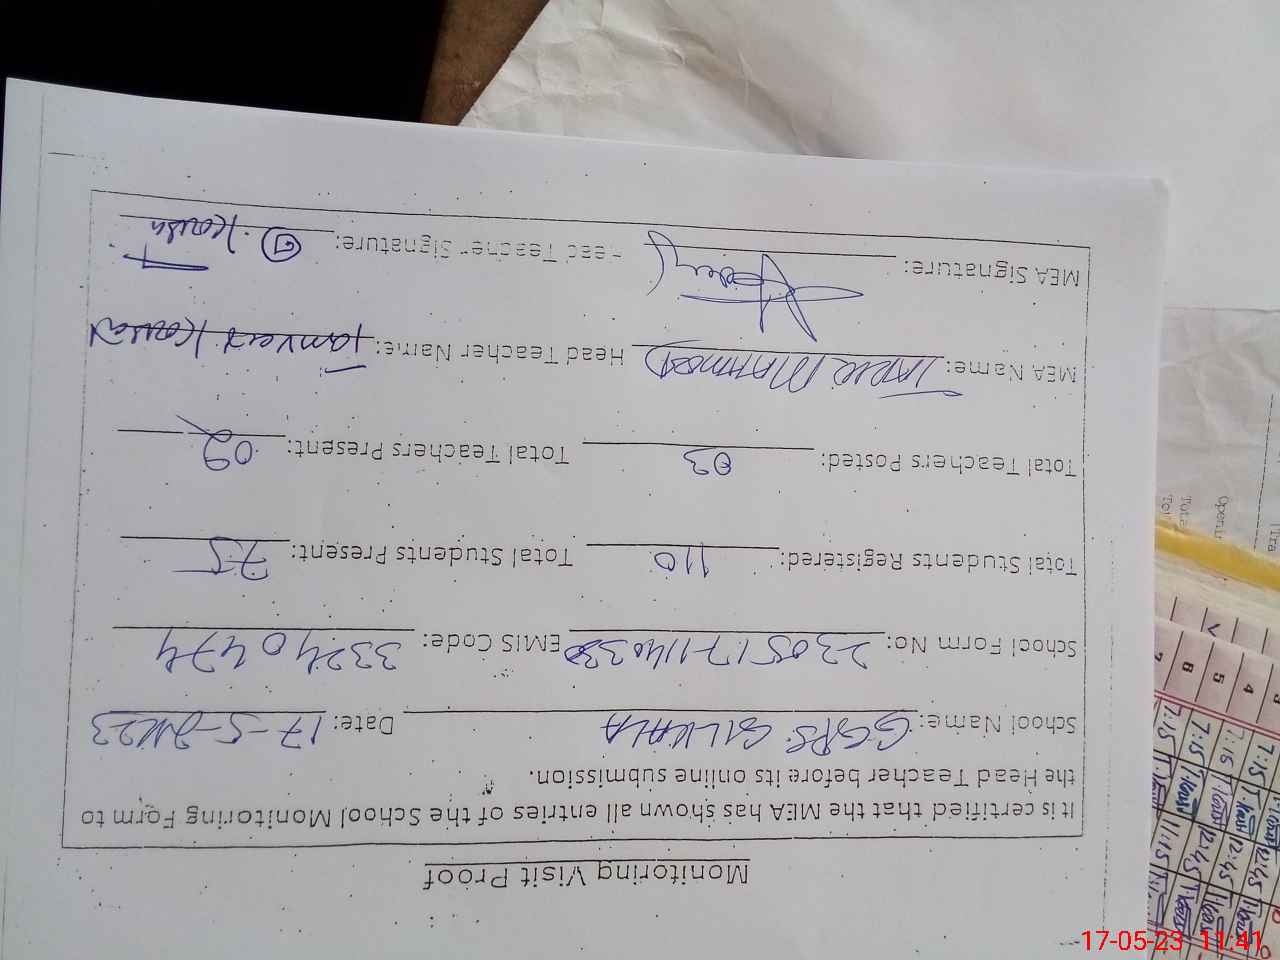 Monitoring Visit Proof
It is certified that the MEA has shown all entries of the School Monitoring Form to
the Head Teacher before its online submission.
School Name: GGPS GILWALA Date: 17-5-2023
School Form No: EMIS Code: 33240474
Total Students Registered: 110 Total Students Present: 75
Total Teachers Posted: 03 Total Teachers Present: 02
MEA Name: MAHMOOD Head Teacher Name: Kousar
MEA Signature: Head Teacher Signature: T. Kousar
7:15 12:45
7:15 12:45
7:15 12:45
7:15 11:15
4
5
6
7
17-05-23 11:41